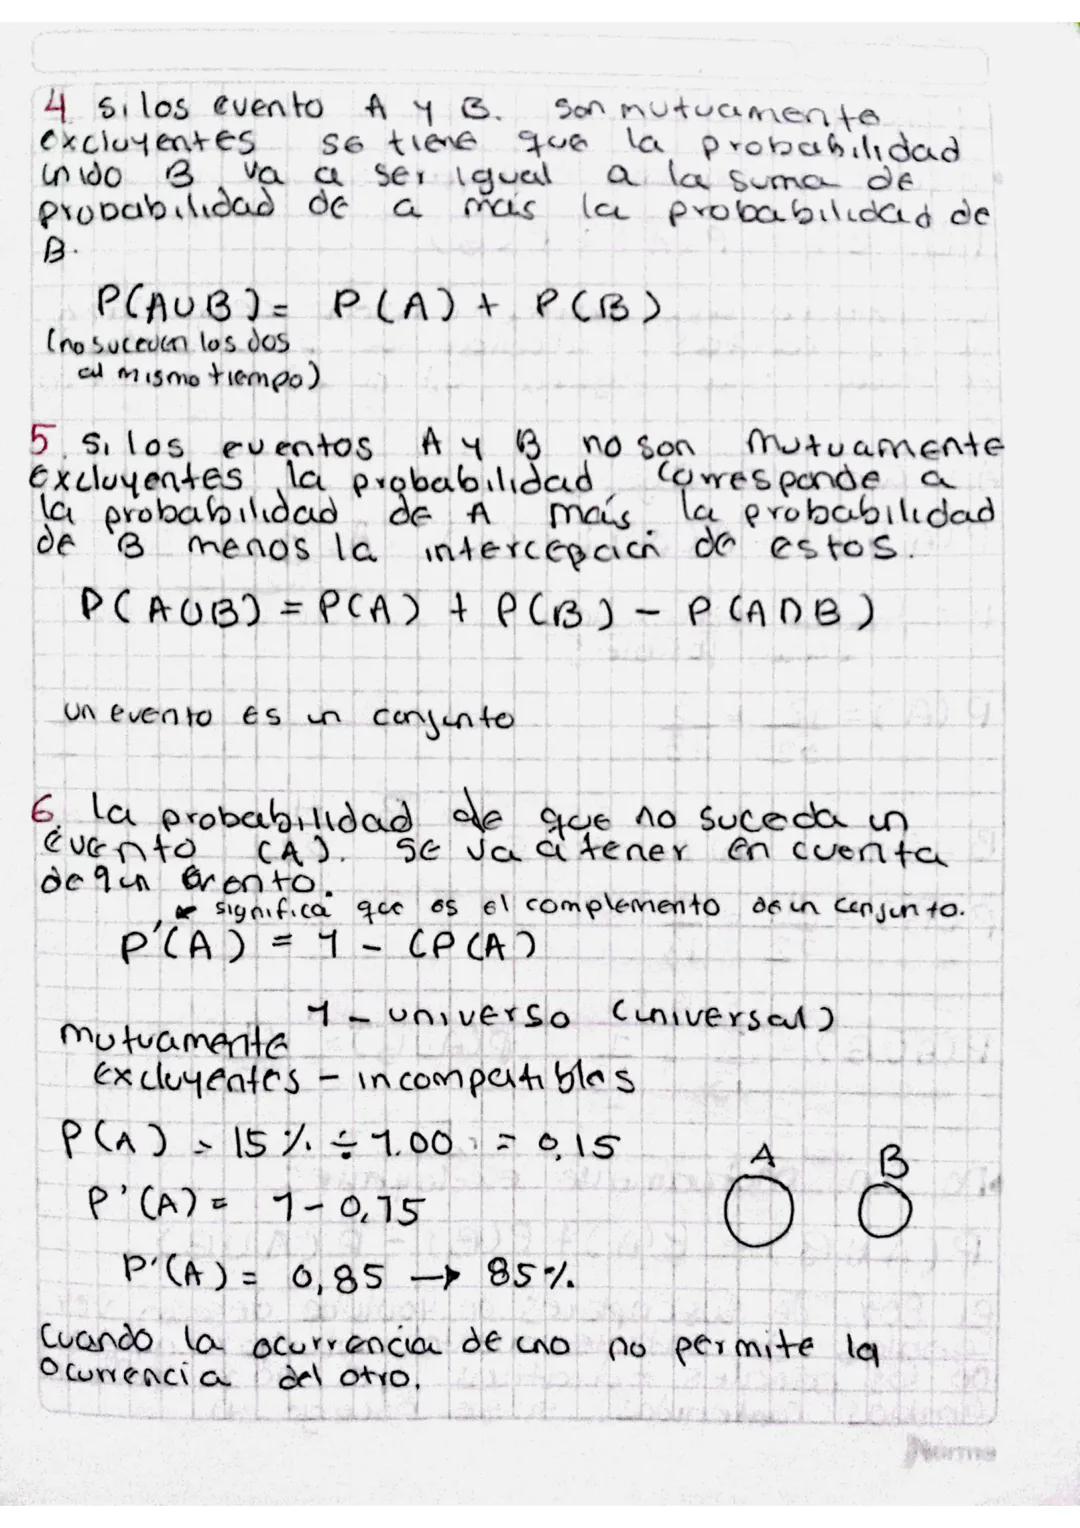 4. si los evento A y B. son mutuamente
excluyentes se tiene que la probabilidad
unido B va a ser igual a la suma de
probabilidad de a más la probabilidad de
B.
P(AUB) = P(A) + P(B)
(no suceden los dos
al mismo tiempo)
5. si los eventos A y B no son mutuamente
excluyentes la probabilidad corresponde a
la probabilidad de A más la probabilidad
de B menos la intercepación de estos.
P(A∪B) = P(A) + P(B) - P(A∩B)
un evento es un conjunto
6. la probabilidad de que no suceda un
evento (A). se va a tener en cuenta
de
significa que es el complemento de un conjunto.
P'(A) = 1 - (P(A)
1 - universo (universal)
mutuamente
excluyentes - incompatibles
P(A) = 15% ÷ 1.00 = 0,15
A B
P'(A) = 1-0,15
P'(A) = 0,85 → 85%
cuando la ocurrencia de uno no permite la
ocurrencia del otro.
Norma